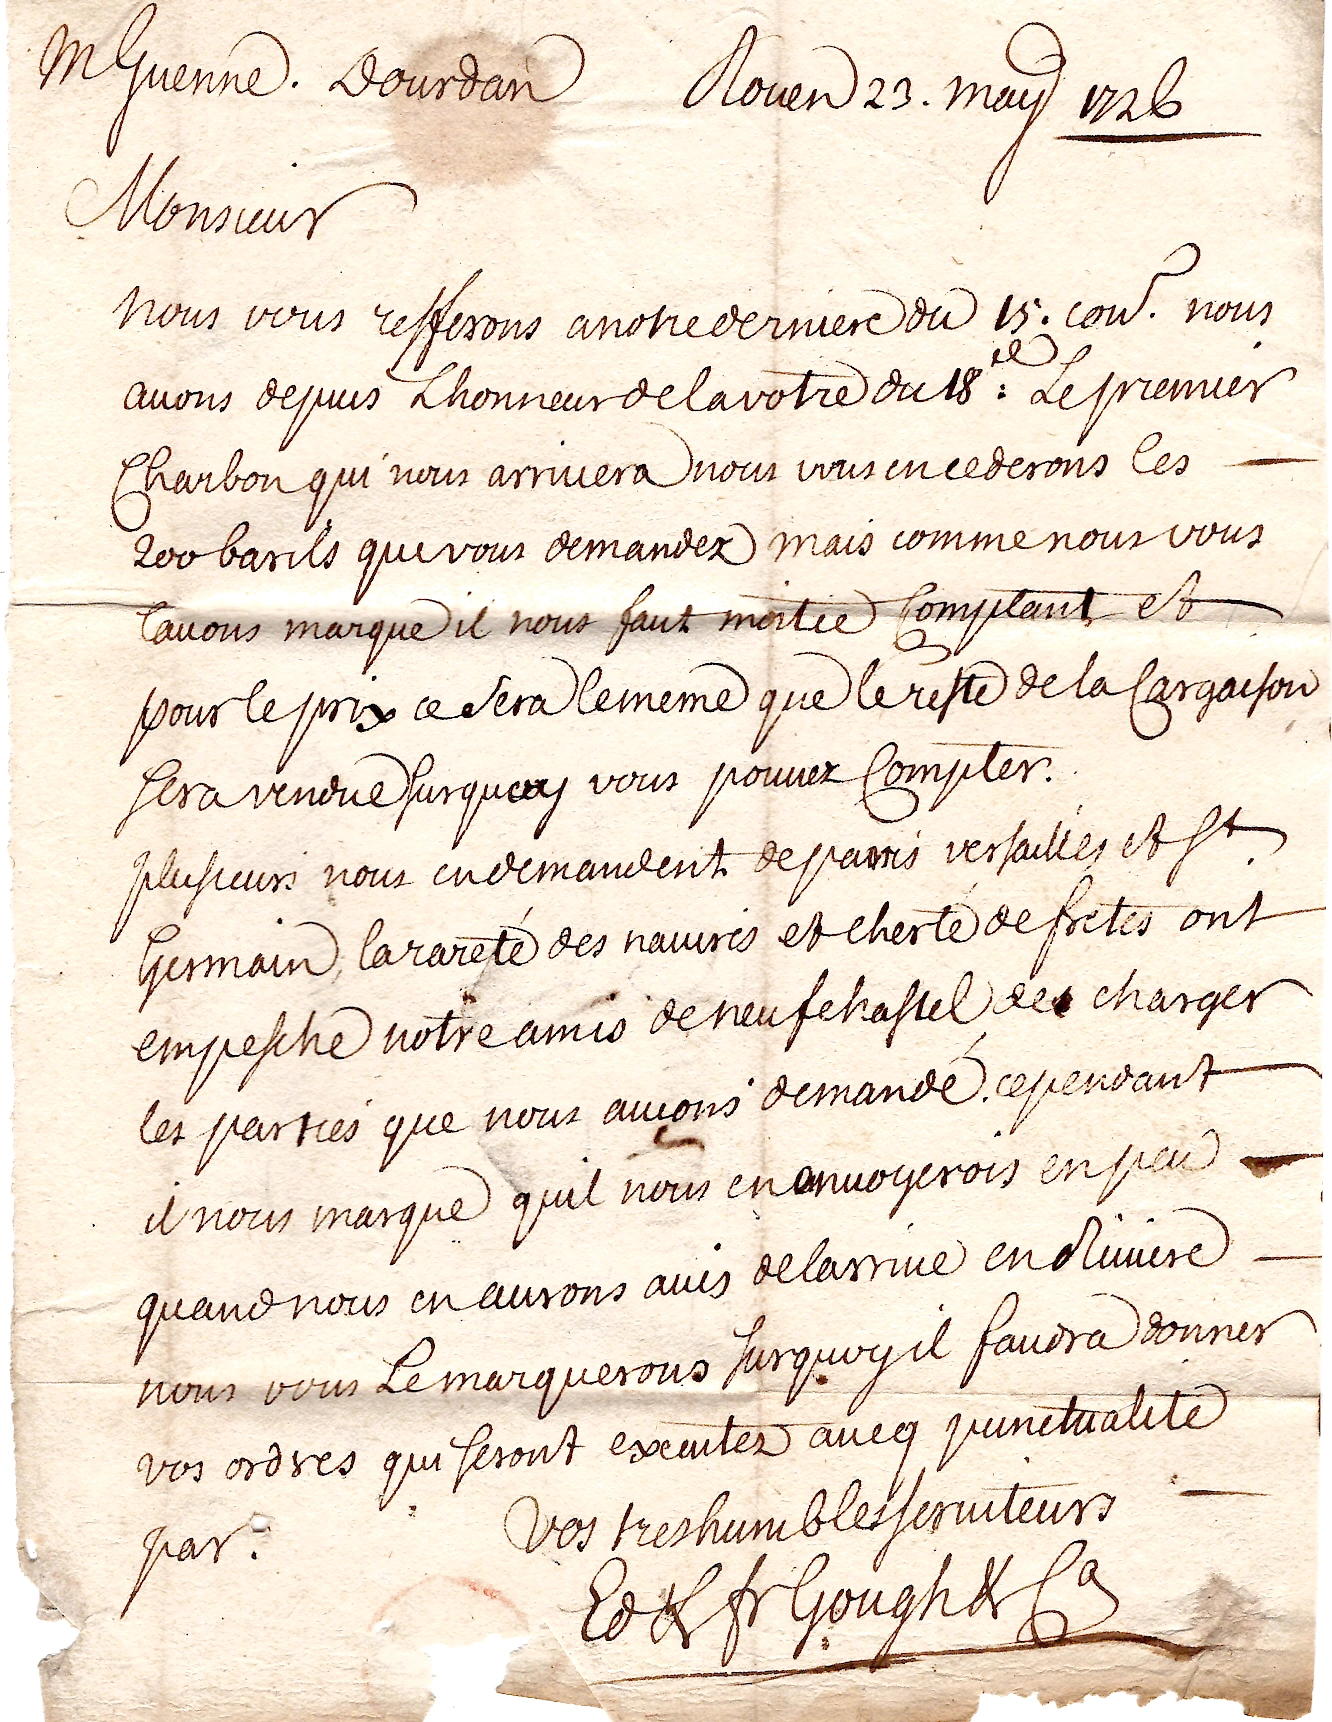 M Guenne. Dourdan Rouen 23. may 1726
Monsieur
Nous vous refferons a notre derniere du 15. cour. nous
avons depuis Lhonneur de la votre du 18 : Le premier
Charbon qui nous arrivera nous vous en cederons les
200 barils que vous demandez mais comme nous vous
lavons marque il nous faut moitie Comptant et
pour le prix ce sera le meme que le reste de la Cargaison
sera vendue surquoy vous pouvez Compter.
plusieurs nous en demandent de paris versailles et St.
Germain, la rareté des navires et cherté de fretes ont
empesche notre amis de neufchastel de charger
les parties que nous avions demandé. cependant
il nous marque quil nous en envoyerois en peu
quand nous en aurons avis de larrive en Riviere
nous vous Le marquerons surquoy il faudra donner
vos ordres qui seront executez avecq punctualite
par. Vos tres humbles serviteurs
Ed & fr Gough & Ca